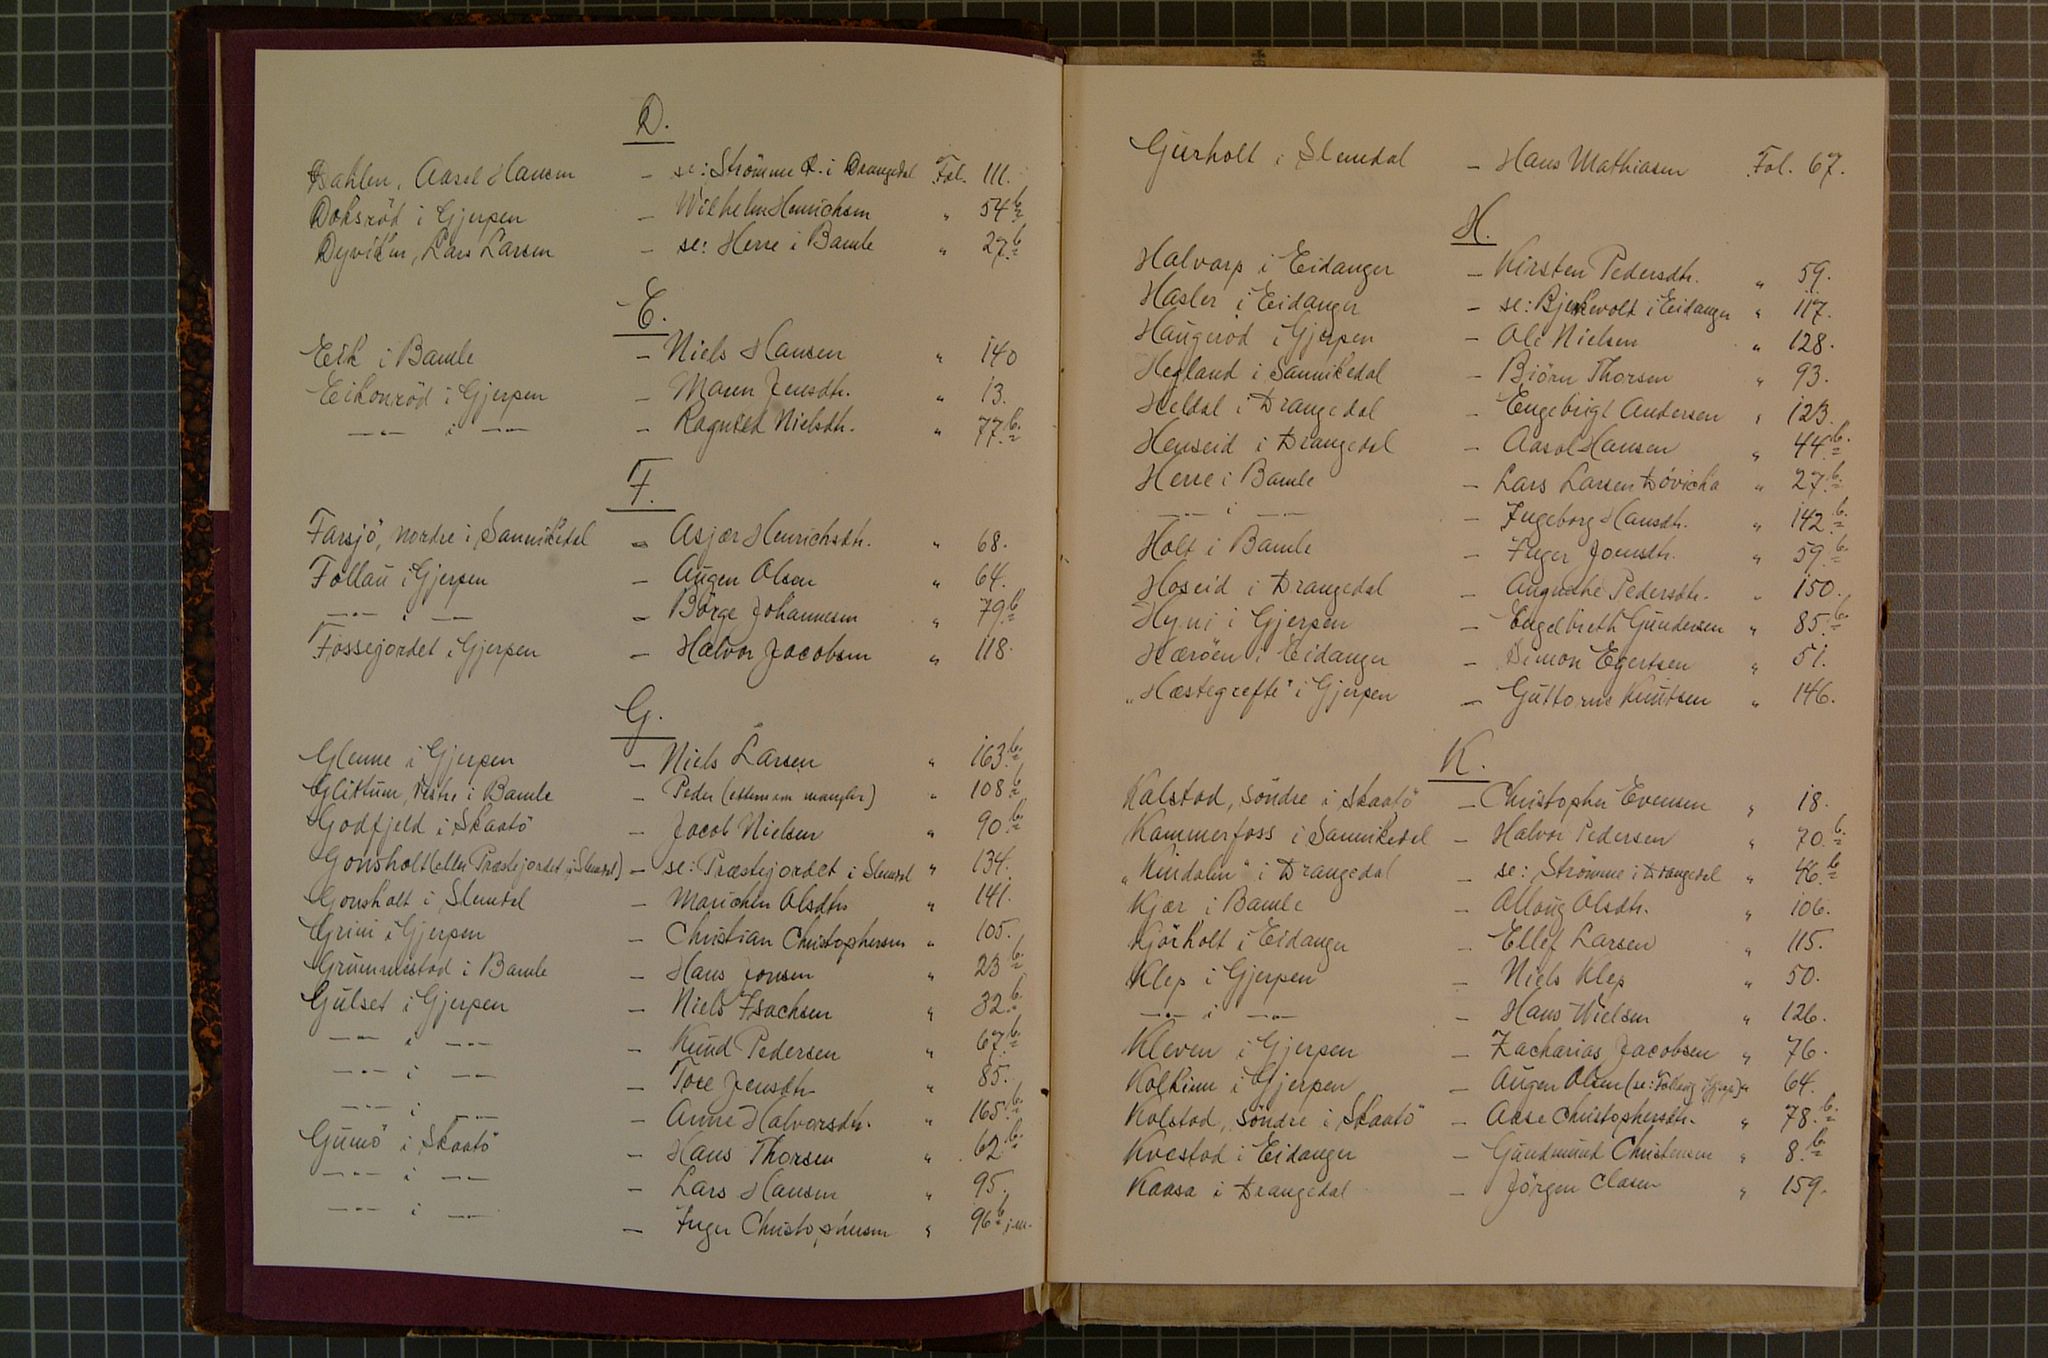 D.
Dahlen, Aasel Hansen — se: Strömme N. i Drangedal Fol. 111.
Doksröd i Gjerpen — Wilhelm Henrichsen " 54 b.
Dyviken, Lars Larsen — se: Herre i Bamle " 27 b.
E.
Eik i Bamle — Niels Hansen " 140
Eikonröd i Gjerpen — Maren Jensdtr. " 13.
—"— i —"— — Ragnild Nielsdtr. " 77 b.
F.
Farsjö, nordre i Sannikedal — Asjær Henrichsdtr. " 68.
Follau i Gjerpen — Augen Olsen " 64.
—"— i —"— — Börge Johannesen " 79 b
Fossejordet i Gjerpen — Halvor Jacobsen " 118.
G.
Glenne i Gjerpen — Niels Larsen " 163 b.
Glittum, Vestre i Bamle — Peder (efternavn mangler) " 108 b
Godfjeld i Skaatö — Jacob Nielsen " 90 b.
Gonsholt (eller Præstejordet i Slemdal) — se: Præstejordet i Slemdal " 134.
Gonsholt i Slemdal — Marichen Olsdtr. " 141.
Grini i Gjerpen — Christian Christophersen " 105.
Grummestad i Bamle — Hans Jonsen " 23 b.
Gulset i Gjerpen — Niels Isachsen " 32 b.
—"— i —"— — Knud Pedersen " 67 b.
—"— i —"— — Tore Jensdtr " 85.
—"— i —"— — Anne Halvorsdtr. " 165 b.
Gumö i Skaatö — Hans Thorsen " 62 b.
—"— i —"— — Lars Hansen " 95.
—"— i —"— — Inger Christophersen " 96 b
Gurholt i Slemdal — Hans Mathiasen Fol. 67.
H.
Halvarp i Eidanger — Kirsten Pedersdtr. " 59.
Hasler i Eidanger — se: Bjerkevolt i Eidanger " 117.
Haugeröd i Gjerpen — Ole Nielsen " 128.
Hegland i Sannikedal — Biörn Thorsen " 93.
Heldal i Drangedal — Engebrigt Andersen " 123.
Henseid i Drangedal — Aasol Hansen " 44 b.
Herre i Bamle — Lars Larsen Dövicka " 27 b.
—"— i —"— — Ingeborg Hansdtr. " 142 b.
Holt i Bamle — Inger Jonsdtr. " 59 b.
Hoseid i Drangedal — Augusthe Pedersdtr. " 150.
Hyni i Gjerpen — Engelbreth Gundersen " 85 b.
Hæröen i Eidanger — Simon Egertsen " 51.
"Hæstegrefte" i Gjerpen — Guttorm Knutsen " 146.
K.
Kalstad, Söndre i Skaatö — Christopher Evensen " 18.
Kammerfoss i Sannikedal — Halvor Pedersen " 70 b.
"Kindalen" i Drangedal — se: Strömme i Drangedal " 46 b
Kjær i Bamle — Alloug Olsdtr. " 106.
Kjörholt i Eidanger — Ellef Larsen " 115.
Klep i Gjerpen — Niels Klep " 50.
—"— i —"— — Hans Nielsen " 126.
Kleven i Gjerpen — Zacharias Jacobsen " 76.
Kolkinn i Gjerpen — Augen Olsen (se: Follaug i Gjerpen) " 64.
Kolstad, Söndre i Skaatö — Aase Christophersdtr. " 78 b.
Kvestad i Eidanger — Gundmund Christensen " 8 b
Kaasa i Drangedal — Jörgen Clasen " 159.